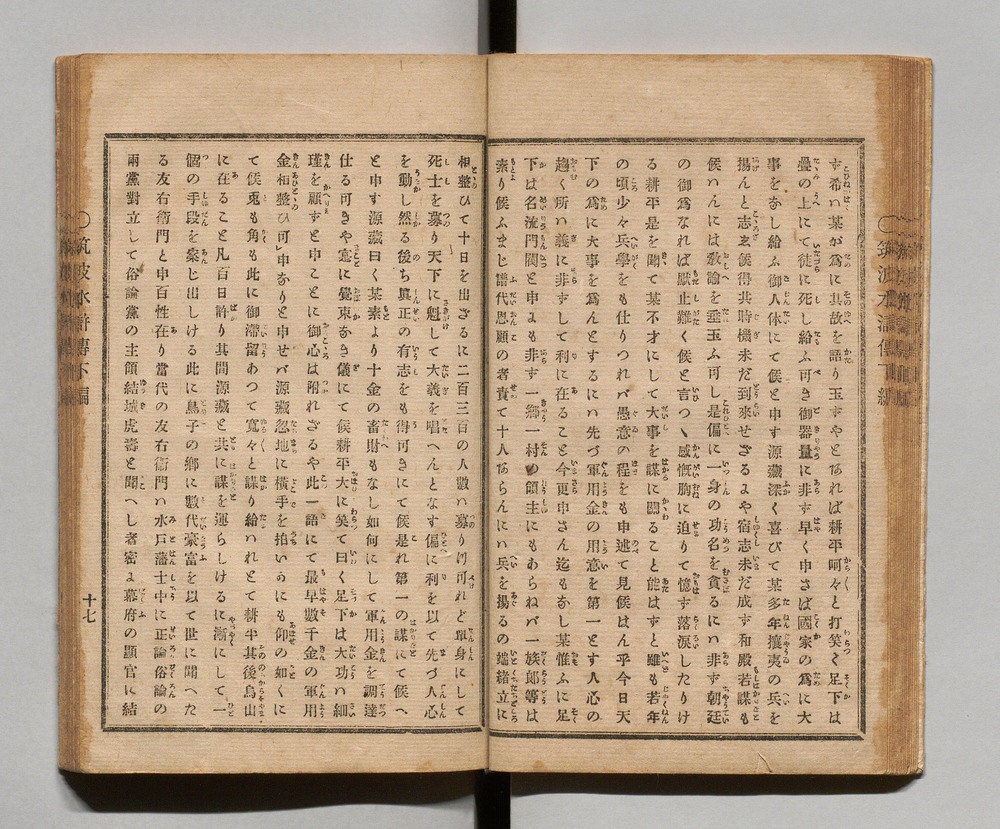 す希くハ某が爲に其故を語り玉すやとあれば耕平呵々と打笑く足下は
疊の上にて徒に死し給ふ可き御器量に非ず早く申さば國家の爲に大
事をかし給ふ御人体にて候と申す源藏深く喜びて某多年攘夷の兵を
揚んと志玄候得共時機未だ到來せざるよや宿志未だ成す和殿若謀も
候ハんには敎諭を垂玉ふ可し是偏に一身の功名を貪るにハ非ず朝廷
の御爲なれば默止難く候と言つヽ感慨胸に迫りて憶す落淚したりけ
る耕平是を聞て某不才にして大事を謀に關ること能はすと雖も若年
の頃少々兵學をも仕りつれバ愚意の程をも申述て見候はん乎今日天
下の爲に大事を爲んとするにハ先づ軍用金の用意を第一とす人心の
趨く所ハ義に非ずして利に在ること今更申さん迄もかし某惟ふに足
下は名流門閥と申よも非ず一鄕一村の領主にもあらねバ一族郞等は
素り候ふまじ譜代恩顧の者責て十人あらんにハ兵を揚るの端緒立に
相整ひて十日を出ざるに二百三百の人數ハ募り得可れど單身にして
死士を募り天下に魁して大義を唱へんとなす偏に利を以て先づ人心
を動し然る後ち眞正の有志をも得可きにて候是れ第一の謀にて候へ
と申す源藏曰く某素より十金の畜財もなし如何にして軍用金を調達
仕る可きや寔に覺束かき儀にて候耕平大に笑て曰く足下は大功ハ細
瑾を顧すと申ことに御心は附れざるや此一語にて最早數千金の軍用
金相整ひ可レ申かりと申せバ源藏忽地に橫手を拍いかにも仰の如くに
て候兎も角も此に御滯留あつて寬々と謀り給ハれとて耕平其後烏山
に在ること凡百日許り其間源藏と共に謀を運らしけるに漸にして一
個の手段を案じ出しける此に鳥子の鄕に數代豪富を以て世に聞へた
る友右衞門と申百性在り當代の友右衞門ハ水戶藩士中に正論俗論の
兩黨對立して俗論黨の主領結城虎壽と聞へし者密よ幕府の顯官に結
筑波水滸傳下編
十七